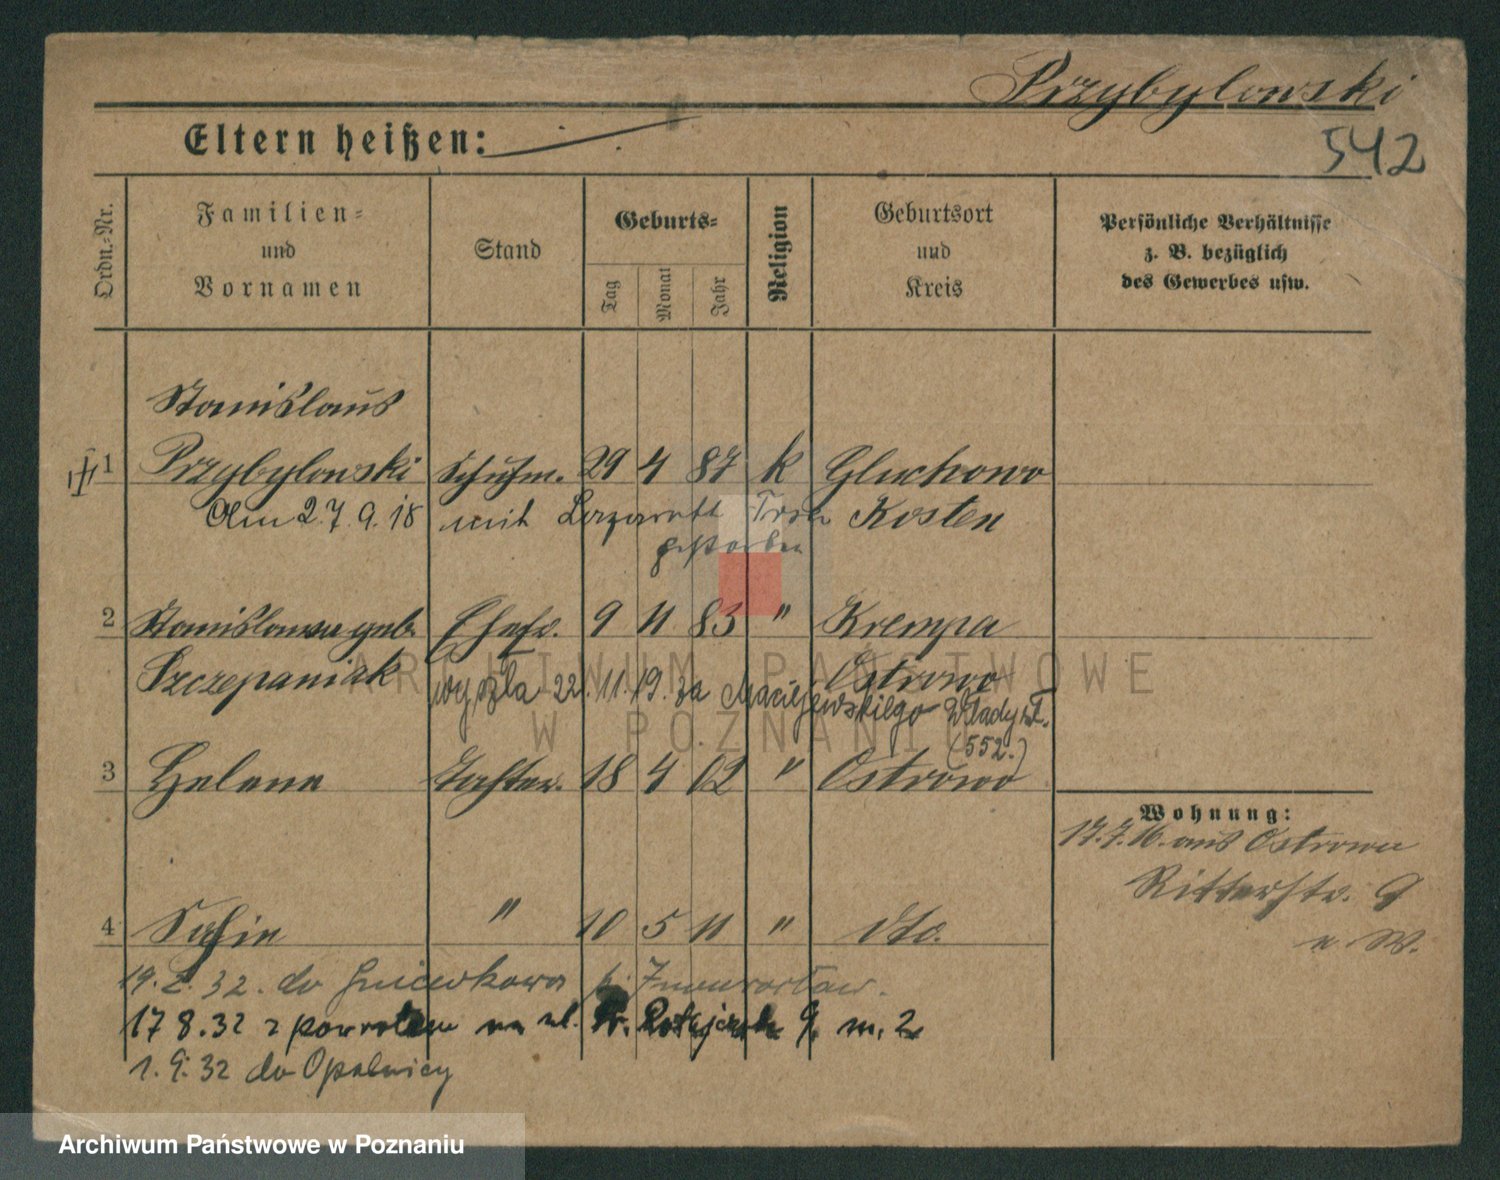 Przybylowski
542
Eltern heißen:
Ordn.-Nr.
Familien-
und
Vornamen
Stand
Geburts-
Tag
Monat
Jahr
Religion
Geburtsort
und
Kreis
Persönliche Verhältnisse
z. B. bezüglich
des Gewerbes usw.
Stanislaus
1 Przybylowski Schuhm. 29 4 87 k Gluchowo
Am 27.9.18 mit Lazarett Kosten
gestorben
2 Stanislawa geb. Ehefr. 9 11 83 " Krempa
Szczepaniak Ostrowo
wyszła 22.11.19. za Maciejewskiego Władysł.
(552.)
3 Helene Tochter. 18 4 02 " Ostrowo
Wohnung:
17.7.16. aus Ostrowo
Ritterstr. 9
n. W.
4 Sofie " 10 5 11 " dto.
19.2.32. do Gniewkowa p. Inowrocław.
17 8.32 z powrotem na ul. 9. m. 2
1.9.32 do Opalenicy
ARCHIWUM PAŃSTWOWE
W POZNANIU
Archiwum Państwowe w Poznaniu